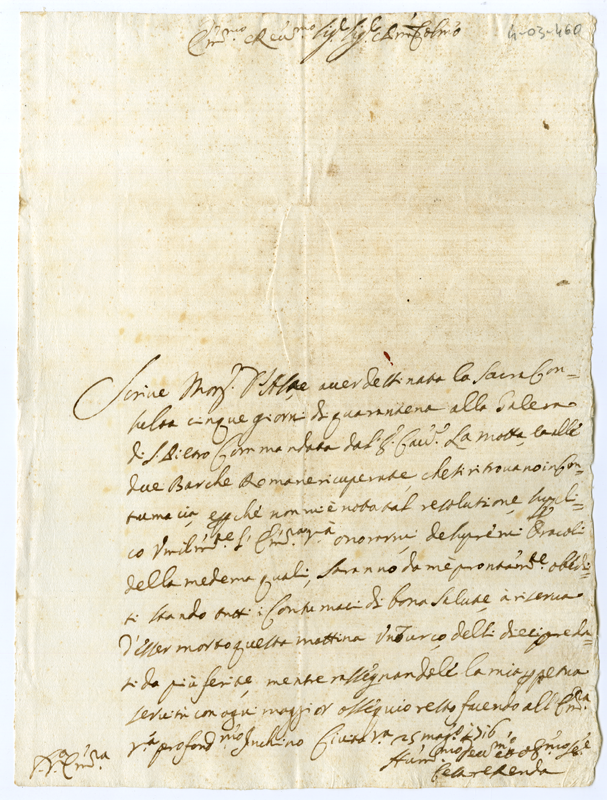 Em.mo e Rev.mo Sig.e Sig.e
4-03-460
Scrive Mons.r d'Aste aver destinata la Sacra Con=
sulta cinque giorni di quarantena alla Galera
di S. Pietro Commandata dal S.r Cav.r La motta, et alle
due Barche Romane ricuperate, che si ritrovano in Con
tumacia, e p.chè non mi è nota tal resolutione suppli=
co umilm.te l'Em.za V.ra onorarmi de supremi Oracoli
della medema quali saranno da me prontam.te obbedi
ti stando tutti i Contumaci di bona salute, à riserva
d'esser morto questa mattina un Turco delli dieci preda=
ti da più ferite, mentre rassegnandole la mia p.petua
servitù con ogni maggior ossequio resto facendo all'Em.za
V.ra profond.mo Inchino Civitav.a 25 mag.o 1716
V.ra Em.za
Hum.mo Dev.mo et Obl.mo Se.re